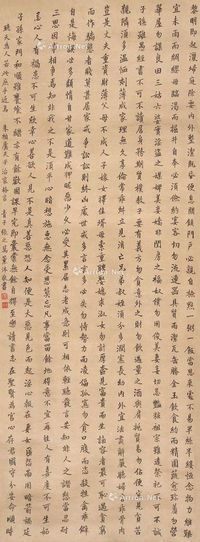 黎明即起灑掃庭除要內外整潔既昏便息關鎖門戶必親自檢點一粥一飯當思來處不易半絲半縷恆念物力維艱
宜未雨而綢繆毋臨渴而掘井自奉必須儉約宴客切勿流連器具質而潔瓦缶勝金玉飲食約而精園蔬愈珍饈勿營
華屋勿謀良田三姑六婆實淫盜之媒婢美妾嬌非閨房之福奴僕勿用俊美妻妾切忌艷妝祖宗雖遠祭祀不可不誠
子孫雖愚經書不可不讀居身務期質樸教子要有義方勿貪意外之財勿飲過量之酒與肩挑貿易勿佔便宜見貧苦
親鄰須多溫恤刻薄成家理無久享倫常乖舛立見消亡兄弟叔姪須分多潤寡長幼內外宜法肅辭嚴聽婦言乖骨肉
豈是丈夫重貲財薄父母不成人子嫁女擇佳婿毋索重聘娶媳求淑女勿計厚奩見富貴而生諂容者最可恥遇貧窮
而作驕態者賤莫甚居家戒爭訟訟則終凶處世戒多言言多必失勿恃勢力而凌逼孤寡勿貪口腹而恣殺牲禽乖僻
自是悔悞必多頹惰自甘家道難成狎暱惡少久必受其累屈志老成急則可相依輕聽發言安知非人之譖愬當忍耐
三思因事相爭焉知非我之不是須平心暗想施惠無念受恩莫忘凡事當留餘地得意不宜再往人有喜慶不可生妒
忌心人有禍患不可生欣幸心善欲人見不是真善惡恐人知便是大惡見色而起淫心報在妻女匿怨而用暗箭禍延
子孫家門和順雖饔飧不繼亦有餘歡國課早完即囊橐無餘自得至樂讀書志在聖賢為官心存君國守分安命順時
聽天為人若此庶乎近焉 朱柏廬夫子治家格言 張之萬薰沐敬書